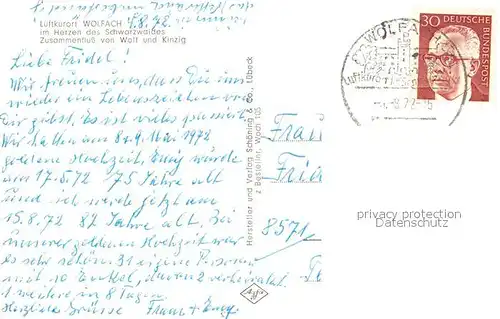 Luftkurort WOLFACH
im Herzen des Schwarzwaldes
Zusammenfluß von Wolf und Kinzig
4.8.72.
Liebe Friedel!
Wir freuen uns, dass Du uns
wieder ein Lebenszeichen von
Dir gibst. Es ist vieles passiert
Wir hatten am 8 + 9. Mai 1972
goldene Hochzeit, Emy wurde
am 17.5.72 75 Jahre alt
und ich werde jetzt am
15.8.72 82 Jahre alt. Bei
unserer goldenen Hochzeit war
es sehr schön 31 eigene Personen
mit 10 Enkel, davon 2 verheiratet
1 weitere in 8 Tagen.
Herzliche Grüsse Franz + Emy.
Hersteller und Verlag Schöning & Co., Lübeck
z Bestellnr. Wach 105
30 DEUTSCHE
BUNDESPOST
WOLFA
72-15
Frau
8571
privacy protection
Datenschutz